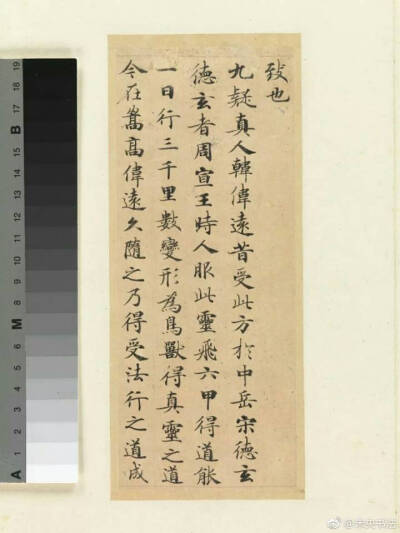 致也
九疑真人韓偉遠昔受此方於中岳宋德玄
德玄者周宣王時人服此靈飛六甲得道能
一日行三千里數變形為鳥獸得真靈之道
今在嵩高偉遠久隨之乃得受法行之道成
A 1 2 3 4 5 6 M 8 9 10 11 12 13 14 15 B 17 18 19
@未央书法